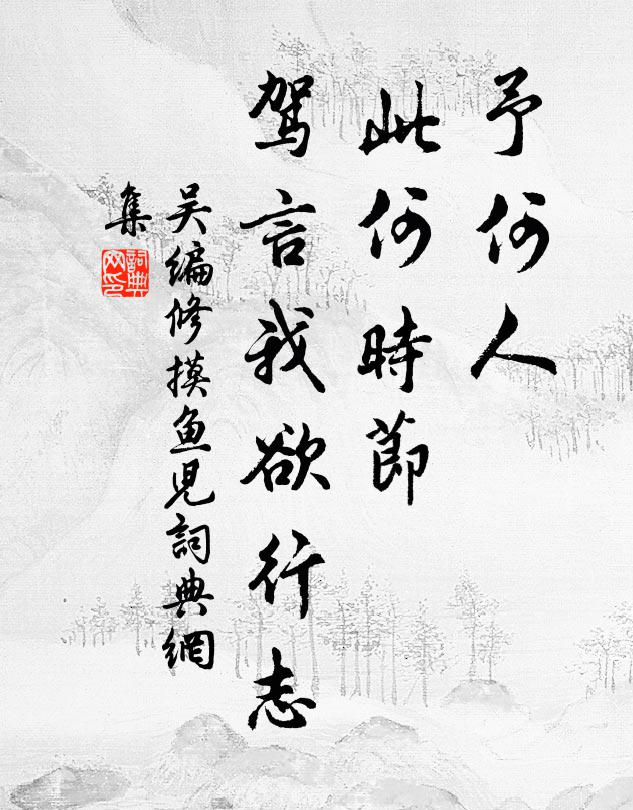 予何人
此何時節
驾言我欲行志
吴编修摸鱼児詞典網
集
詞典
网印